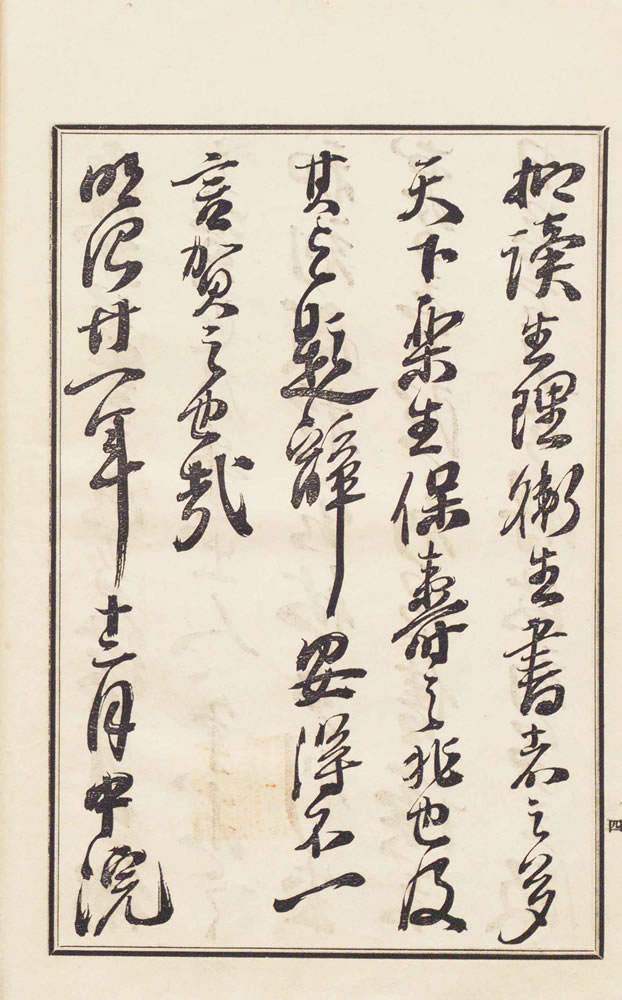 抑讀生理衛生書者之多
天下樂生保壽之兆也及
其乞題辭安得不一
言賀之也哉
明治廿一年十二月中浣
四